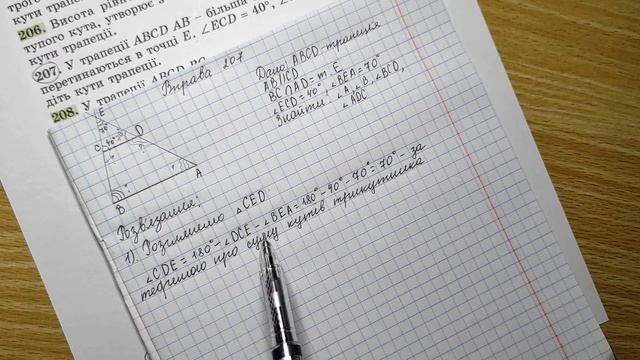 трого
кути трапе
206. Висота рівн
тупого кута, утворює з
кути трапеції.
207. У трапеції ABCD AB – більша
перетинаються в точці E. ∠ECD = 40°, ∠
діть кути трапеції.
208. У трапеції ABCD BC
Вправа 207
Дано: ABCD-трапеція
AB||CD
BC∩AD = т. E
∠ECD=40°, ∠BEA=70°
Знайти: ∠A, ∠B, ∠BCD,
∠ADC
E
70°
C
40°
D
A
B
Розв'язання:
1). Розглянемо △CED:
∠CDE = 180°-∠DCE-∠BEA=180°-40°-70°=70°-за
теоремою про суму кутів трикутника